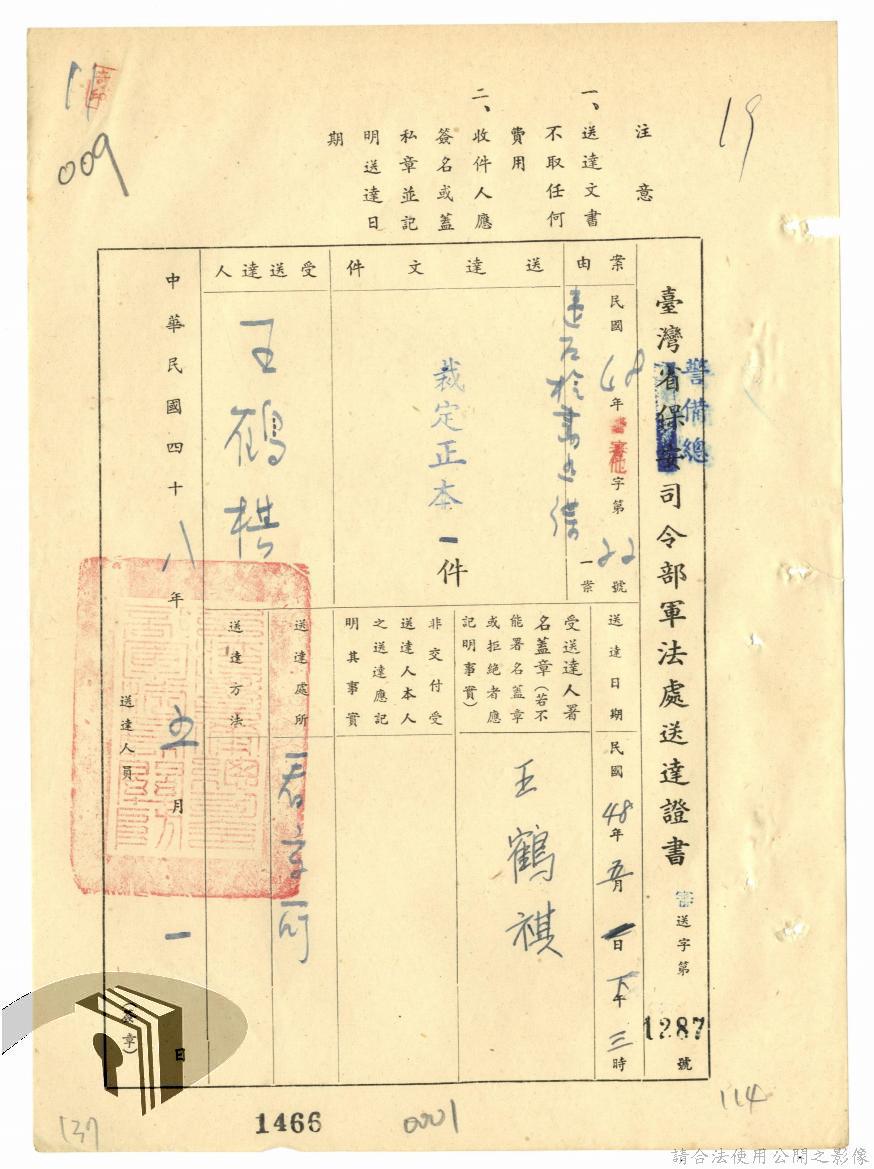 19
11
009
注意
一、送達文書
不取任何
費用
二、收件人應
簽名或蓋
私章並記
明送達日
期
臺灣省保安司令部軍法處送達證書
警備總
審
送字第
1287
號
案由
民國48年
字第22號
一案
送達文件
裁定正本一件
受送達人
王鶴棋
送達日期
民國48年五月一日下午三時
受送達人署
名蓋章(若不
能署名蓋章
或拒絕者應
記明事實)
王鶴祺
非交付受
送達人本人
之送達應記
明其事實
送達處所
看守所
送達方法
中華民國四十八年五月一日
送達人員
(簽章)
137
1466
0001
114
請合法使用公開之影像